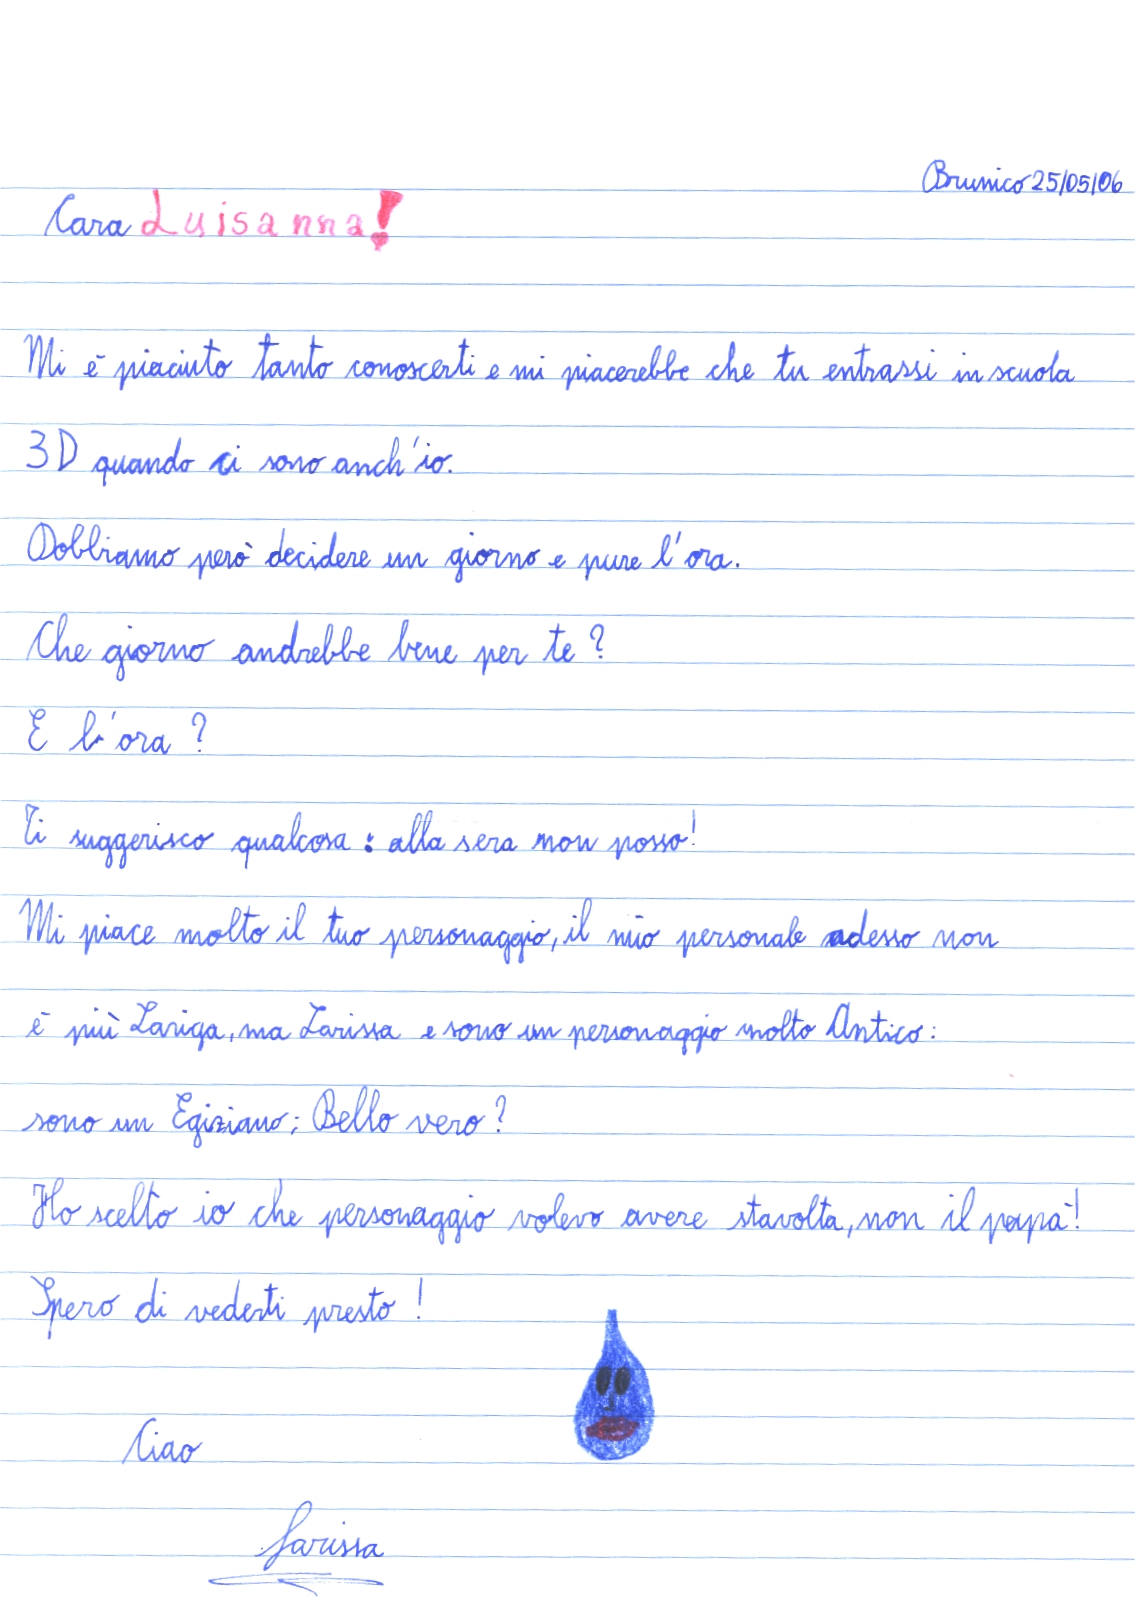 Brunico 25/05/06
Cara Luisanna!
Mi è piaciuto tanto conoscerti e mi piacerebbe che tu entrassi in scuola
3D quando ci sono anch'io.
Dobbiamo però decidere un giorno e pure l'ora.
Che giorno andrebbe bene per te?
E l'ora?
Ti suggerisco qualcosa: alla sera non posso!
Mi piace molto il tuo personaggio, il mio personale adesso non
è più Lariga, ma Larissa e sono un personaggio molto Antico:
sono un Egiziano; Bello vero?
Ho scelto io che personaggio volevo avere stavolta, non il papà!
Spero di vederti presto!
Ciao
Larissa